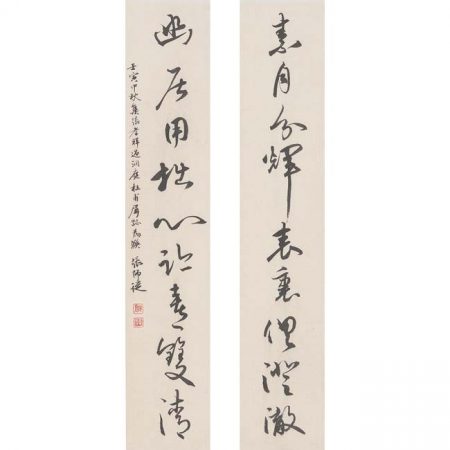 素月分輝表裏俱澄澈
幽居用拙心跡喜雙清
壬寅中秋集張孝祥過洞庭杜甫屏跡為聯 張師從